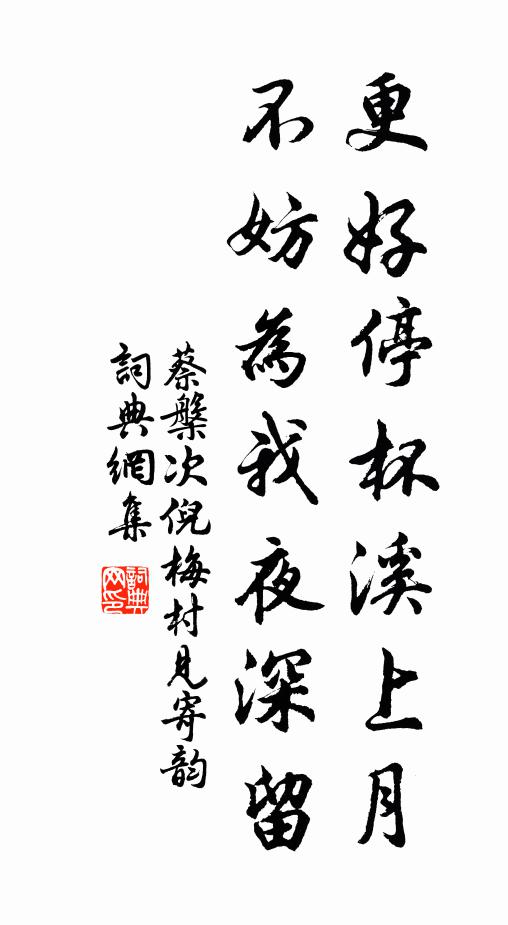 更好停杯溪上月
不妨為我夜深留
蔡槃次倪梅村見寄韵
詞典網集
詞典网印